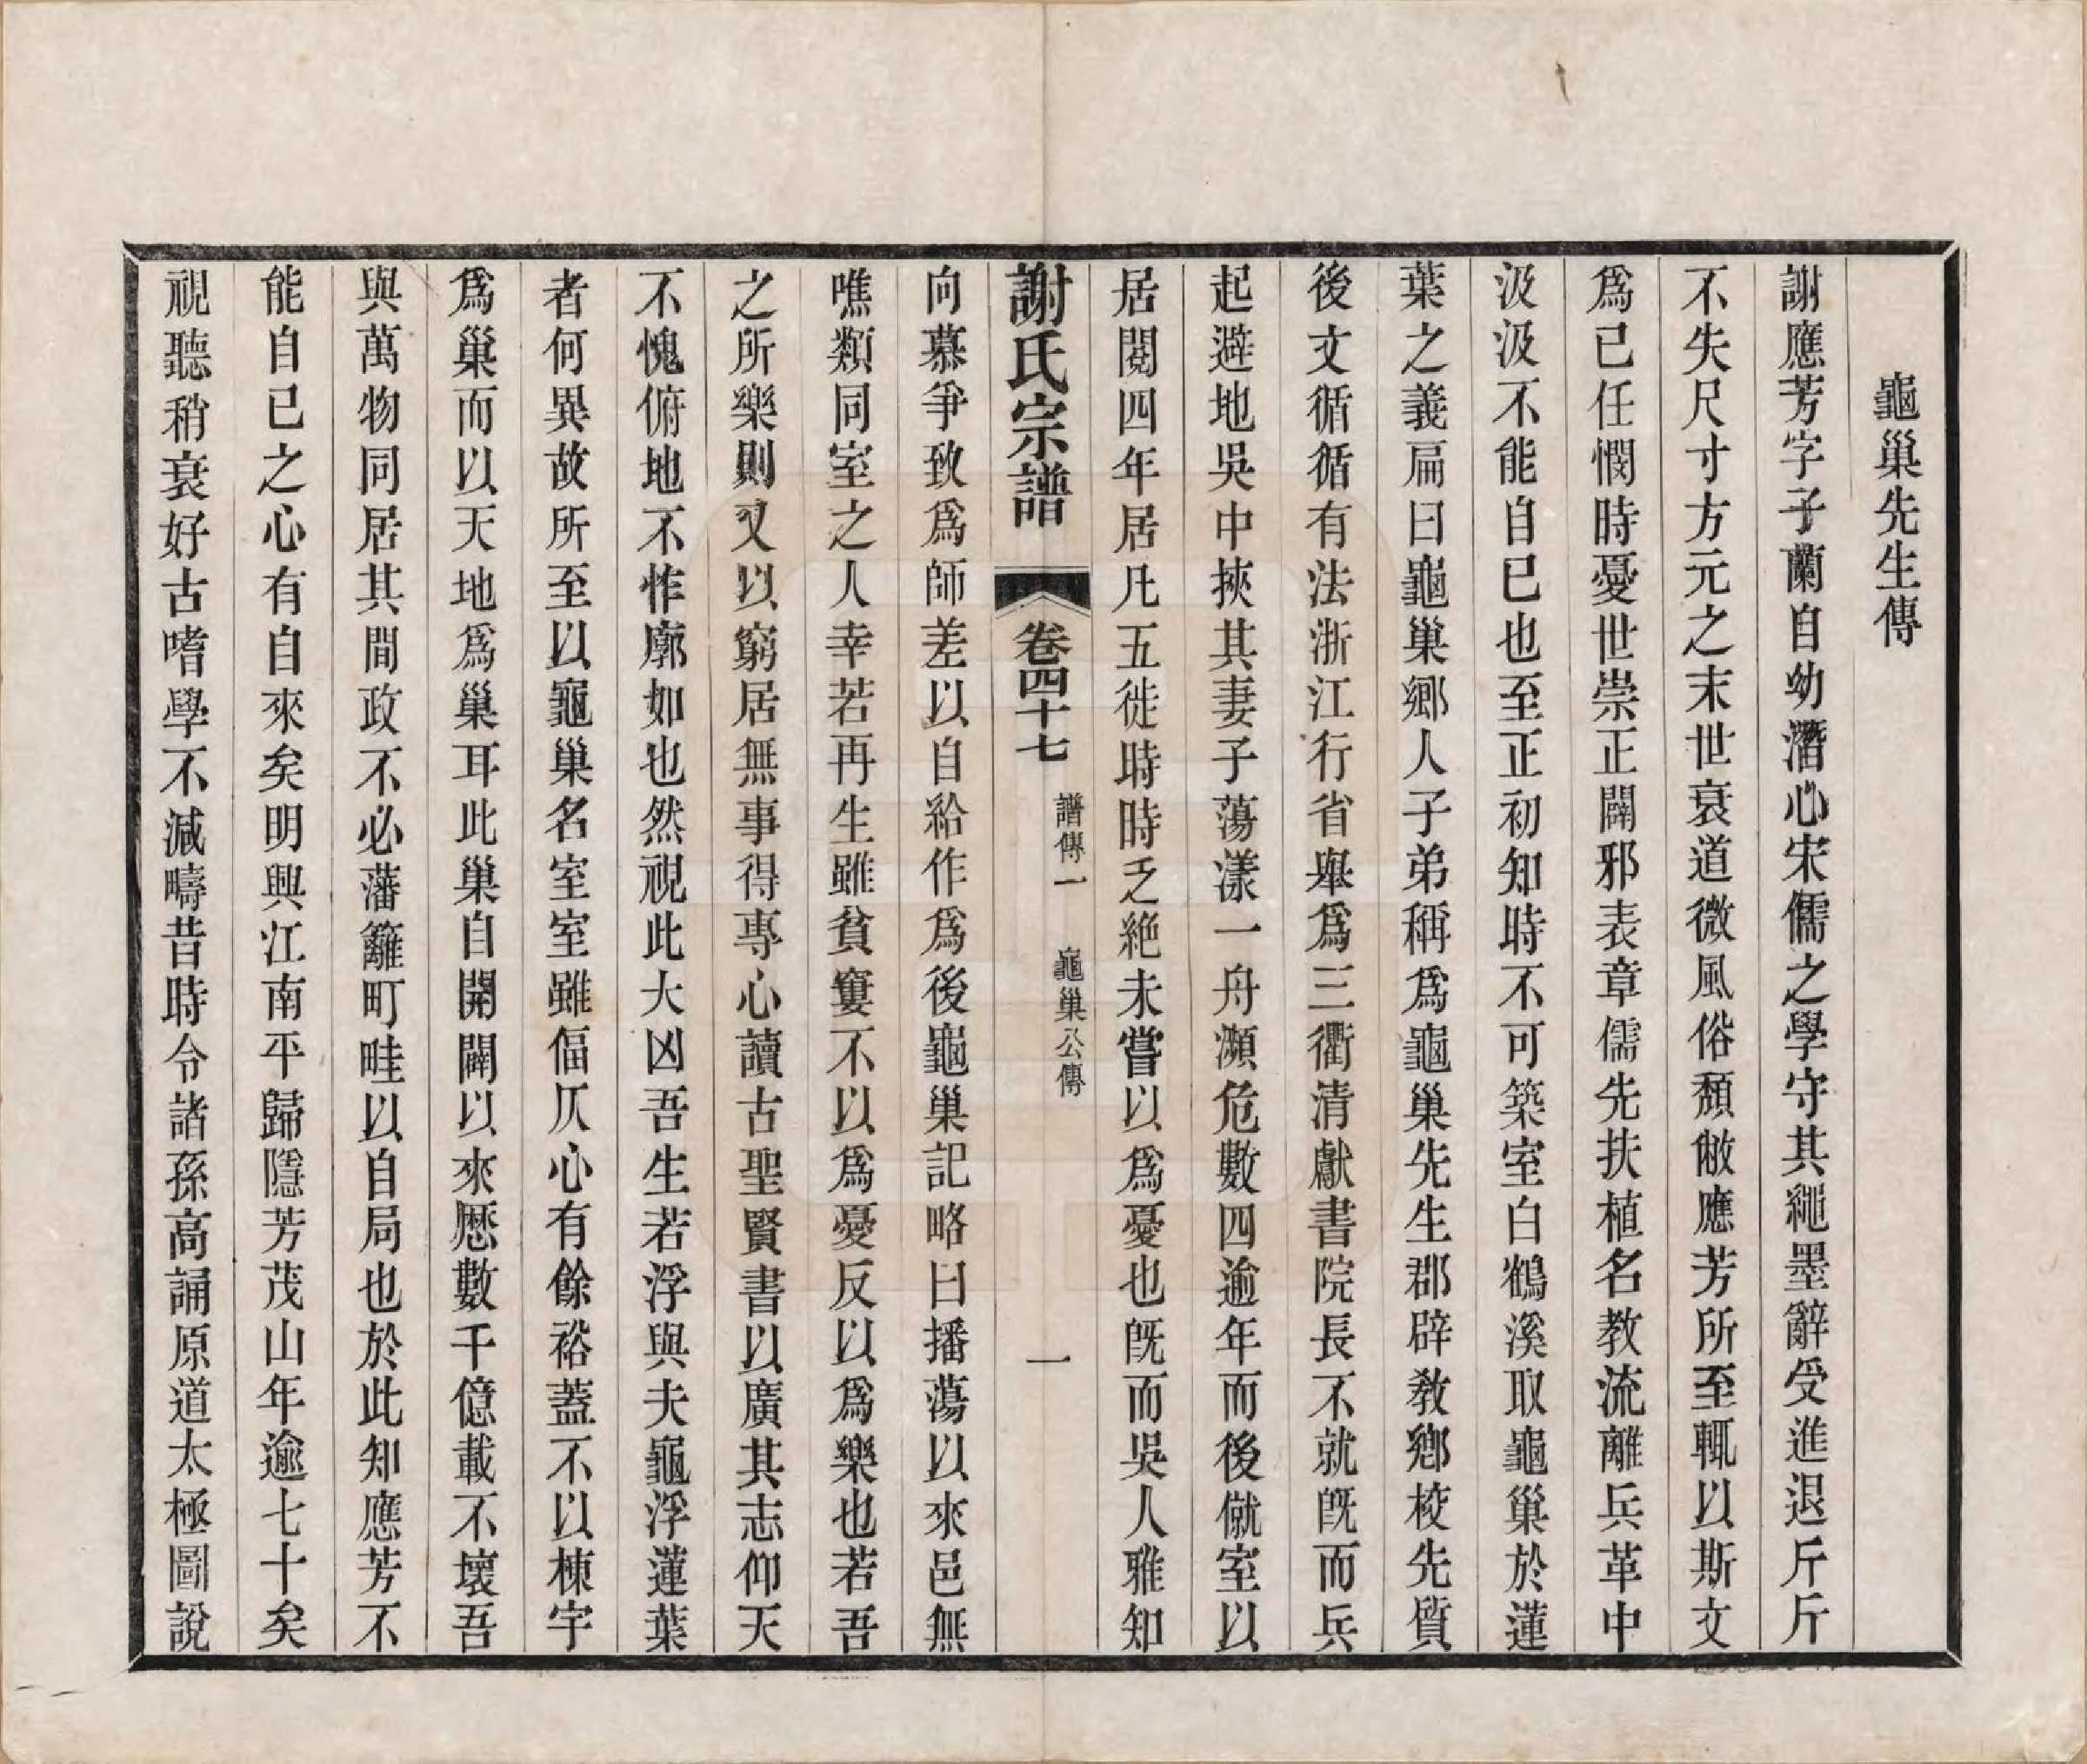 龜巢先生傳
謝應芳字子蘭自幼潛心宋儒之學守其繩墨辭受進退斤斤
不失尺寸方元之末世衰道微風俗頹敝應芳所至輒以斯文
爲己任憫時憂世崇正闢邪表章儒先扶植名教流離兵革中
汲汲不能自已也至正初知時不可築室白鶴溪取龜巢於蓮
葉之義扁曰龜巢鄉人子弟稱爲龜巢先生郡辟教鄉校先質
後文循循有法浙江行省舉爲三衢清獻書院長不就旣而兵
起避地吳中挾其妻子蕩漾一舟瀕危數四逾年而後僦室以
居閱四年居凡五徙時時乏絶未嘗以爲憂也旣而吳人雅知
謝氏宗譜 卷四十七 譜傳一 龜巢公傳 一
向慕爭致爲師差以自給作爲後龜巢記略曰播蕩以來邑無
噍類同室之人幸若再生雖貧窶不以爲憂反以爲樂也若吾
之所樂則又以窮居無事得專心讀古聖賢書以廣其志仰天
不愧俯地不怍廓如也然視此大凶吾生若浮與夫龜浮蓮葉
者何異故所至以龜巢名室室雖偪仄心有餘裕蓋不以棟宇
爲巢而以天地爲巢耳此巢自開闢以來歷數千億載不壞吾
與萬物同居其間政不必藩籬町畦以自局也於此知應芳不
能自已之心有自來矣明興江南平歸隱芳茂山年逾七十矣
視聽稍衰好古嗜學不減疇昔時令諸孫高誦原道太極圖說